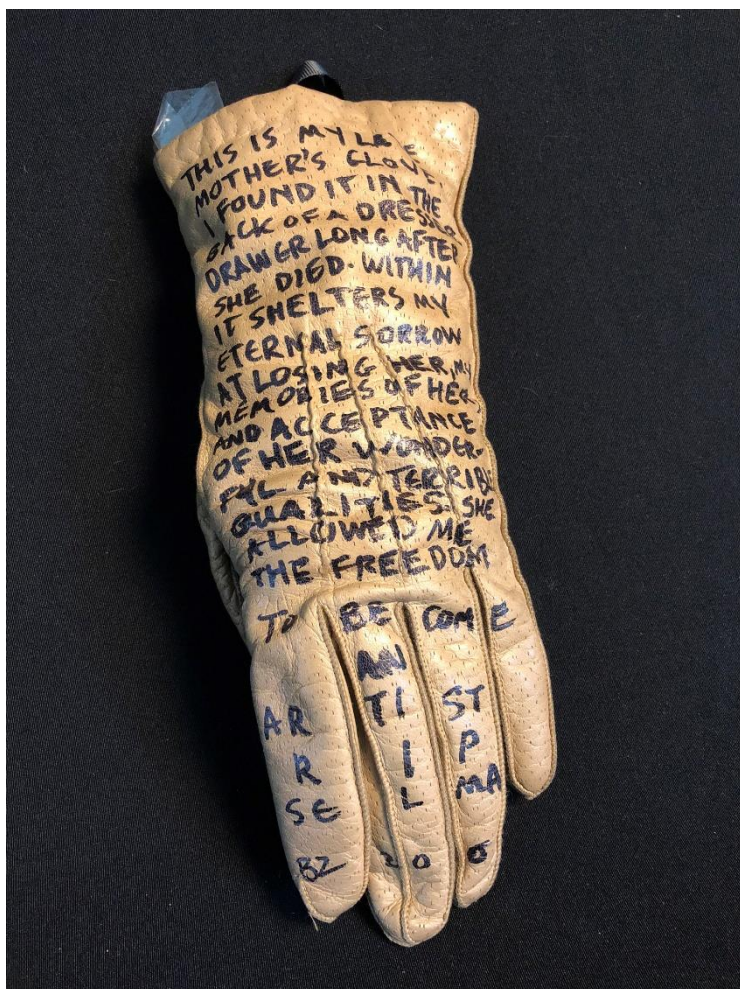 THIS IS MY LATE
MOTHER'S GLOVE.
I FOUND IT IN THE
BACK OF A DRESSER
DRAWER LONG AFTER
SHE DIED. WITHIN
IT SHELTERS MY
ETERNAL SORROW
AT LOSING HER, MY
MEMORIES OF HER
AND ACCEPTANCE
OF HER WONDER-
FUL AND TERRIBLE
QUALITIES. SHE
ALLOWED ME
THE FREEDOM
TO BE COME
AN
AR TI ST
R I P
SE L MA
BZ